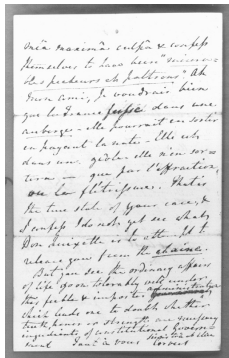 meâ maximâ culpâ & confess
themselves to have been "
pecheurs et poltrons". Ah
mon ami, je voudrais bien
que la France fusse dans une
auberge - elle pourrait en sortir
en payant la note. Elle est
dans une geôle elle n'en sor-
tira que par l'effraction,
ou la flétrissure. That is
the true state of your case, &
I confess I do not yet see what
Don Quixotte is to
release you from the chaine.
But you see the ordinary affairs
of life go on tolerably well under
this feeble & impostor
which leads me to doubt whether
truth, honor or strength are necessary
ingredients of constitutional Govern-
ment